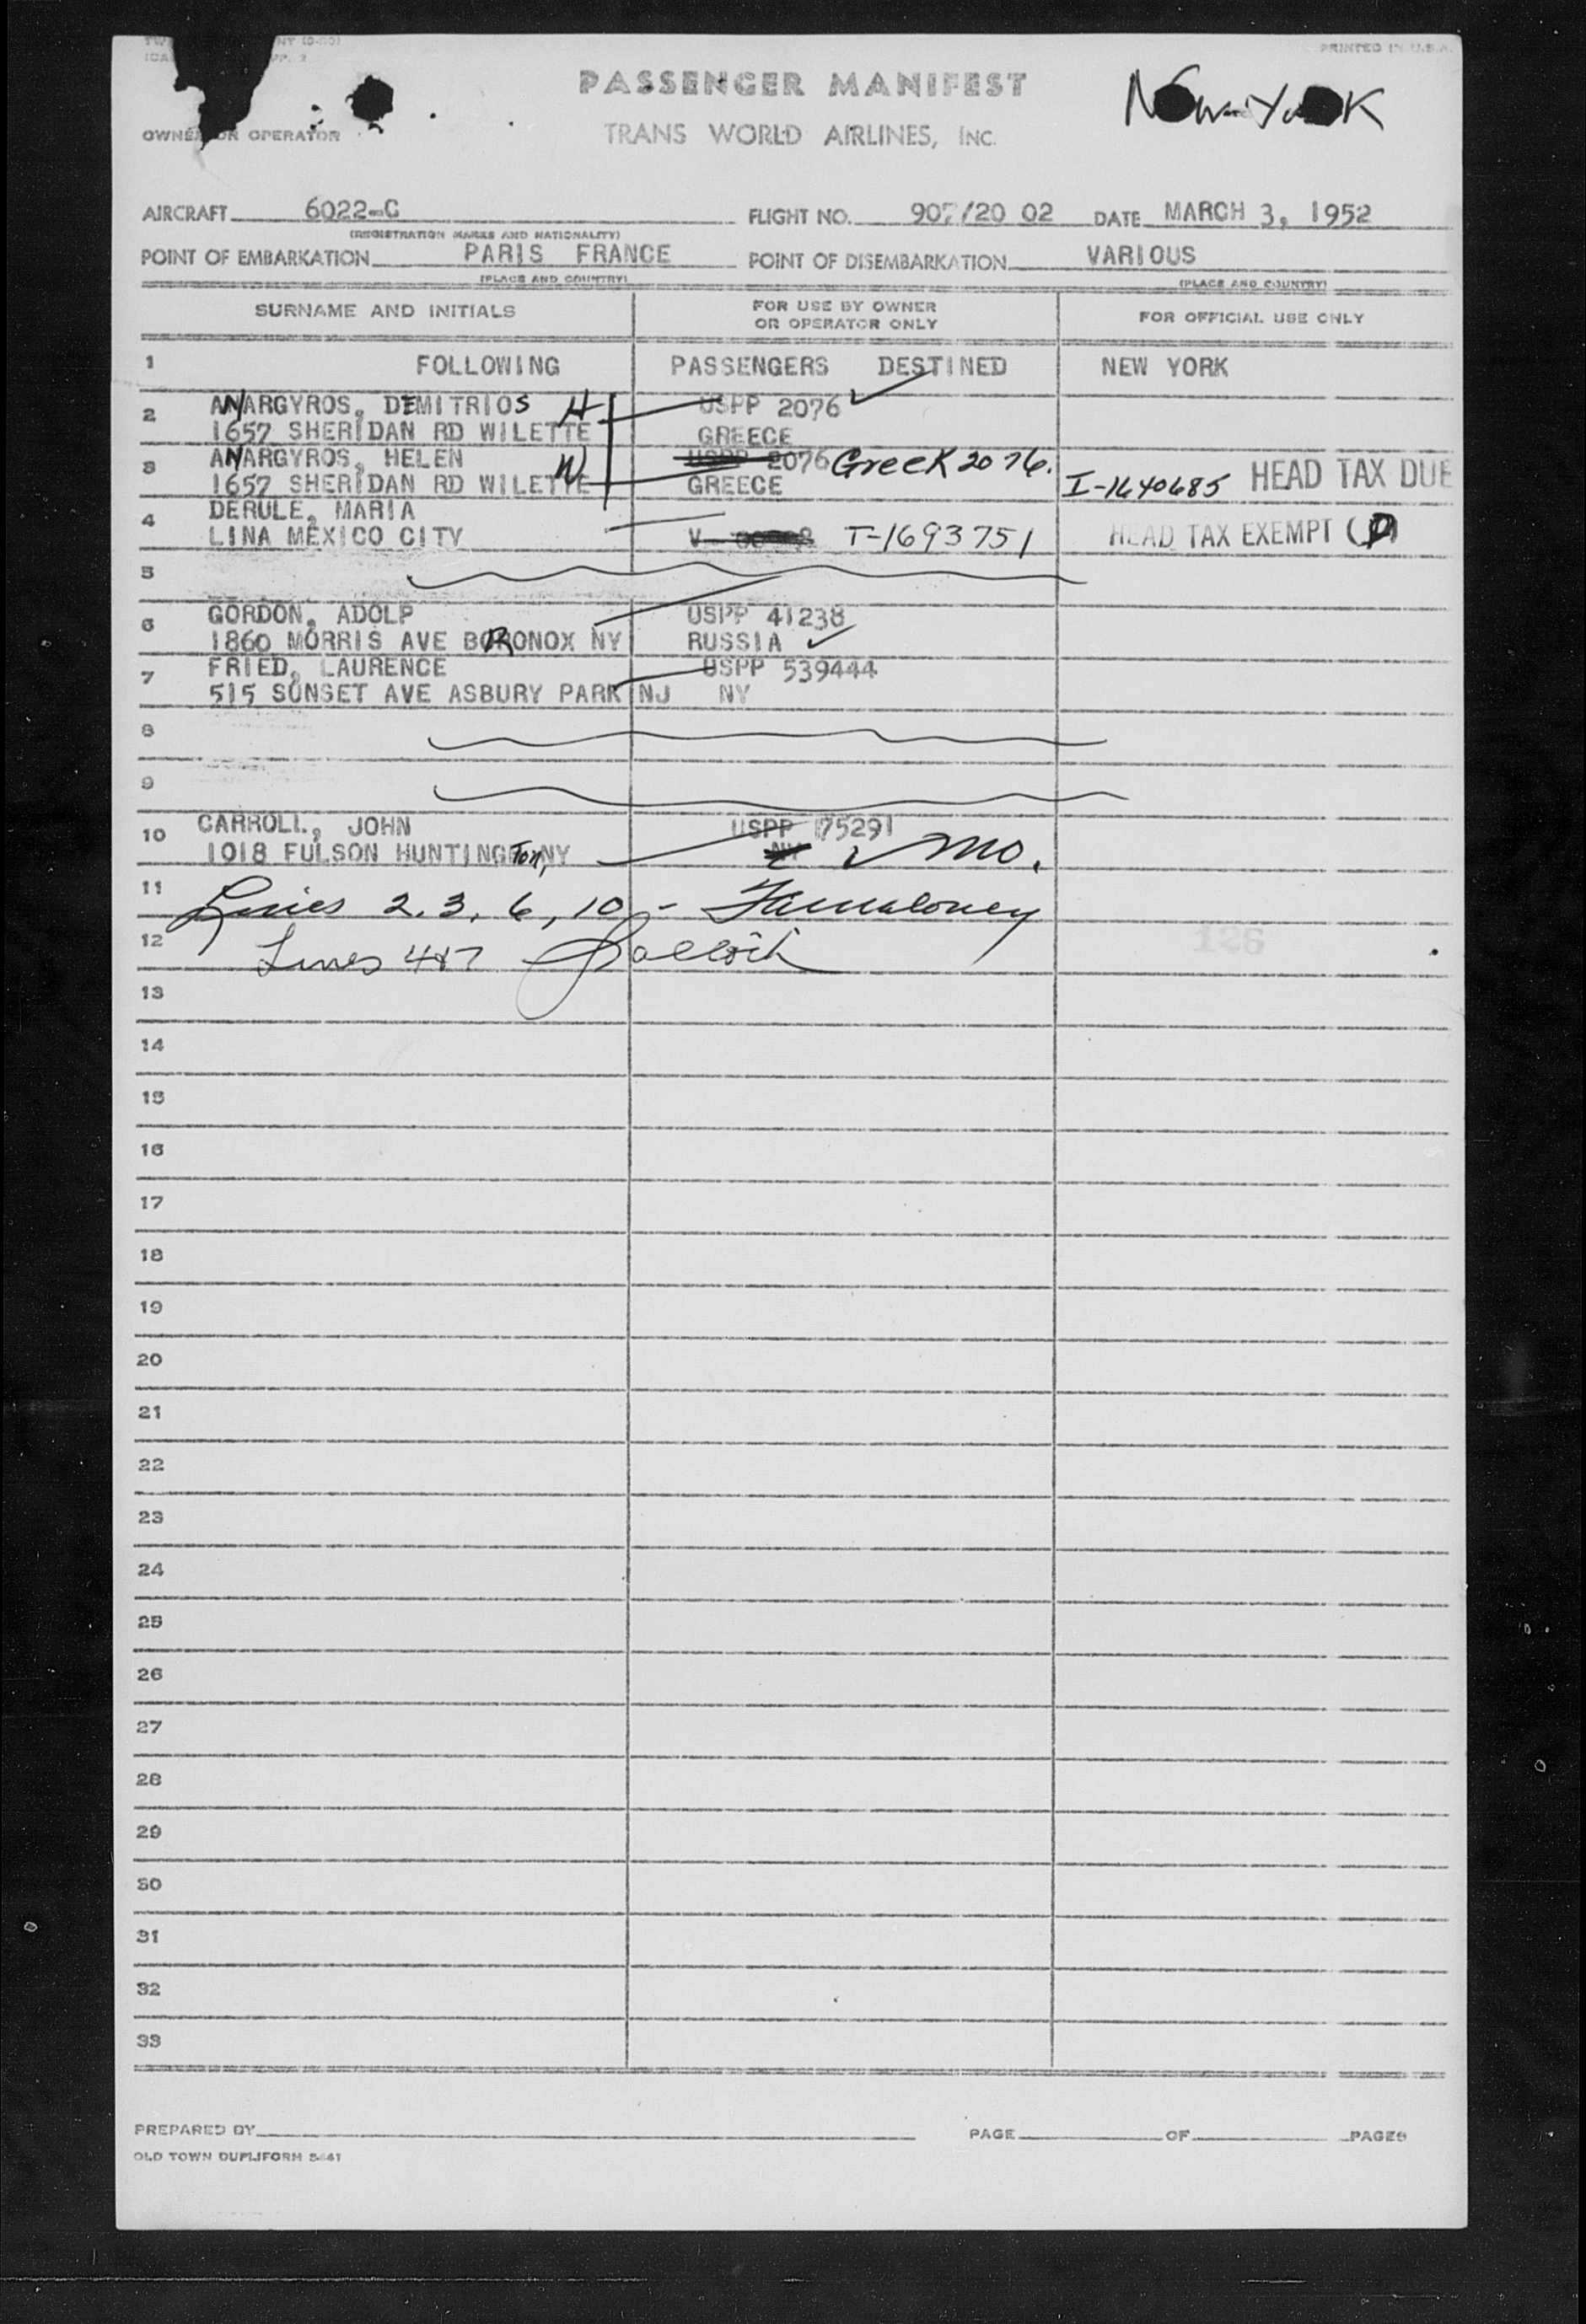 PRINTED IN U.S.A.
PASSENGER MANIFEST
NEW YORK
OWNER OR OPERATOR
TRANS WORLD AIRLINES, INC.
AIRCRAFT 6022-C FLIGHT NO. 907/20 02 DATE MARCH 3, 1952
(REGISTRATION MARKS AND NATIONALITY)
POINT OF EMBARKATION PARIS FRANCE POINT OF DISEMBARKATION VARIOUS
(PLACE AND COUNTRY) (PLACE AND COUNTRY)
SURNAME AND INITIALS FOR USE BY OWNER OR OPERATOR ONLY FOR OFFICIAL USE ONLY
1 FOLLOWING PASSENGERS DESTINED NEW YORK
2 ANARGYROS, DEMITRIOS H USPP 2076
1657 SHERIDAN RD WILETTE GREECE
3 ANARGYROS, HELEN W USPP 2076 Greek 2076.
1657 SHERIDAN RD WILETTE GREECE I-1640685 HEAD TAX DUE
4 DERULE, MARIA
LINA MEXICO CITY V T-1693751 HEAD TAX EXEMPT (P)
5
6 GORDON, ADOLP USPP 41238
1860 MORRIS AVE BORONOX NY RUSSIA
7 FRIED, LAURENCE USPP 539444
515 SUNSET AVE ASBURY PARK NJ NY
8
9
10 CARROLL, JOHN USPP 175291
1018 FULSON HUNTINGTon, NY NY Mo.
11 Lines 2, 3, 6, 10 -
12 Lines 4&7
126
13
14
15
16
17
18
19
20
21
22
23
24
25
26
27
28
29
30
31
32
33
PREPARED BY PAGE OF PAGES
OLD TOWN DUPLIFORM 5441